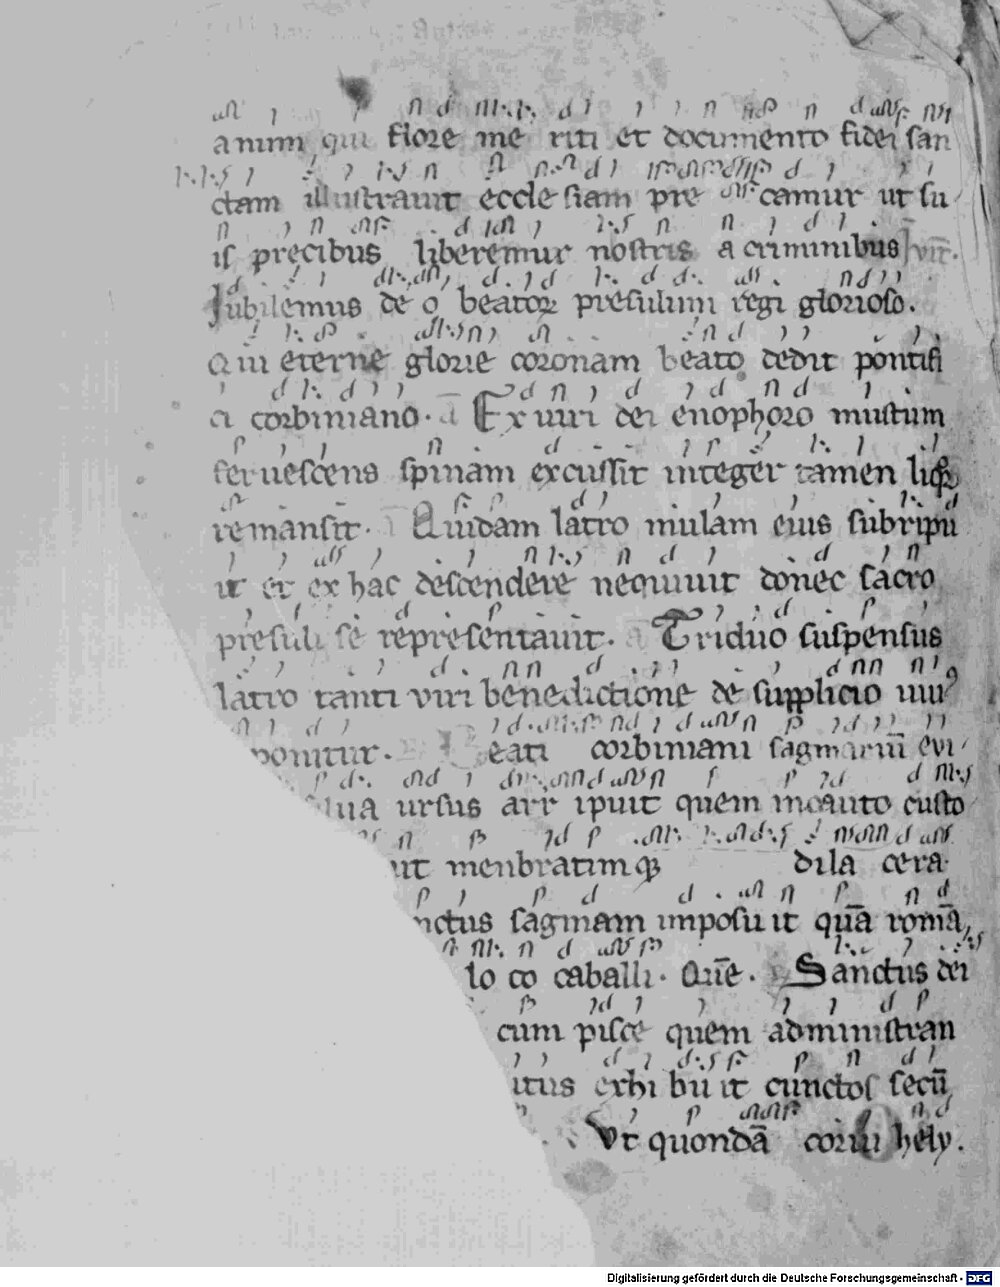 anim qui flore me riti et documento fidei san
ctam illustrauit eccle siam pre camur ut su
is precibus liberemur nostris a criminibus
Jubilemus de o beatoꝝ presulum regi glorioso.
Qui eterne glorie coronam beato dedit pontifi
ci corbiniano. Ex uiri dei enophoro mustum
feruescens spinam excussit integer tamen
remansit. Quidam latro mulam eius subripu
it et ex hac descendere nequiuit donec sacro
presuli se representauit. Triduo suspensus
latro tanti viri benedictione de supplicio uiuꝰ
ponitur. eati corbiniani sagmariū evi
ursus arr ipuit quem incauto custo
it menbratimqꝫ dila cera
nctus sagmam imposu it quā romā
lo co caballi. Sanctus dei
cum pisce quem administran
itus exhi bu it cunctos secū
Vt quondā hely.
Digitalisierung gefördert durch die Deutsche Forschungsgemeinschaft - DFG